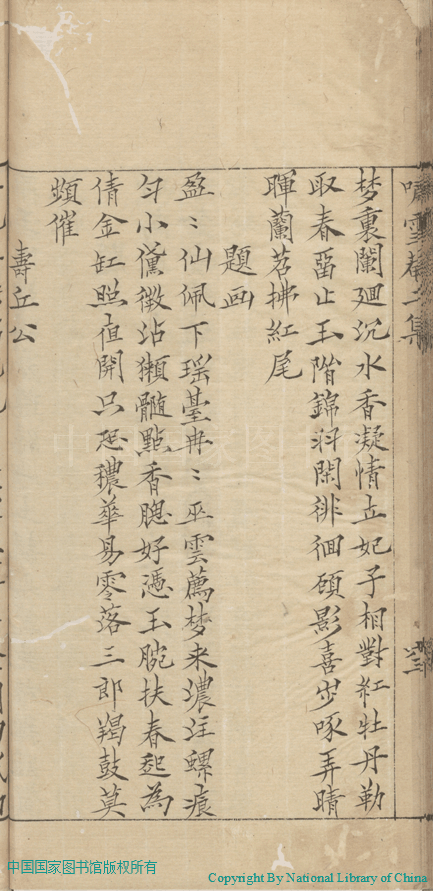 嘯雪菴二集
梦裏闌廻沉水香凝情立妃子相對紅牡丹勒
取春畱止玉階錦羽閑徘徊頋影喜步啄弄晴
暉蘭苕拂紅尾
題画
盈〻仙佩下瑶臺冉〻巫雲薦梦来濃注螺痕
匀小黛微沾獺髓點香腮好憑玉腕扶春起為
倩金缸照夜開只恐穠華易零落三郎羯鼓莫
頻催
壽丘公
中国国家图书馆版权所有
Copyright By National Library of China